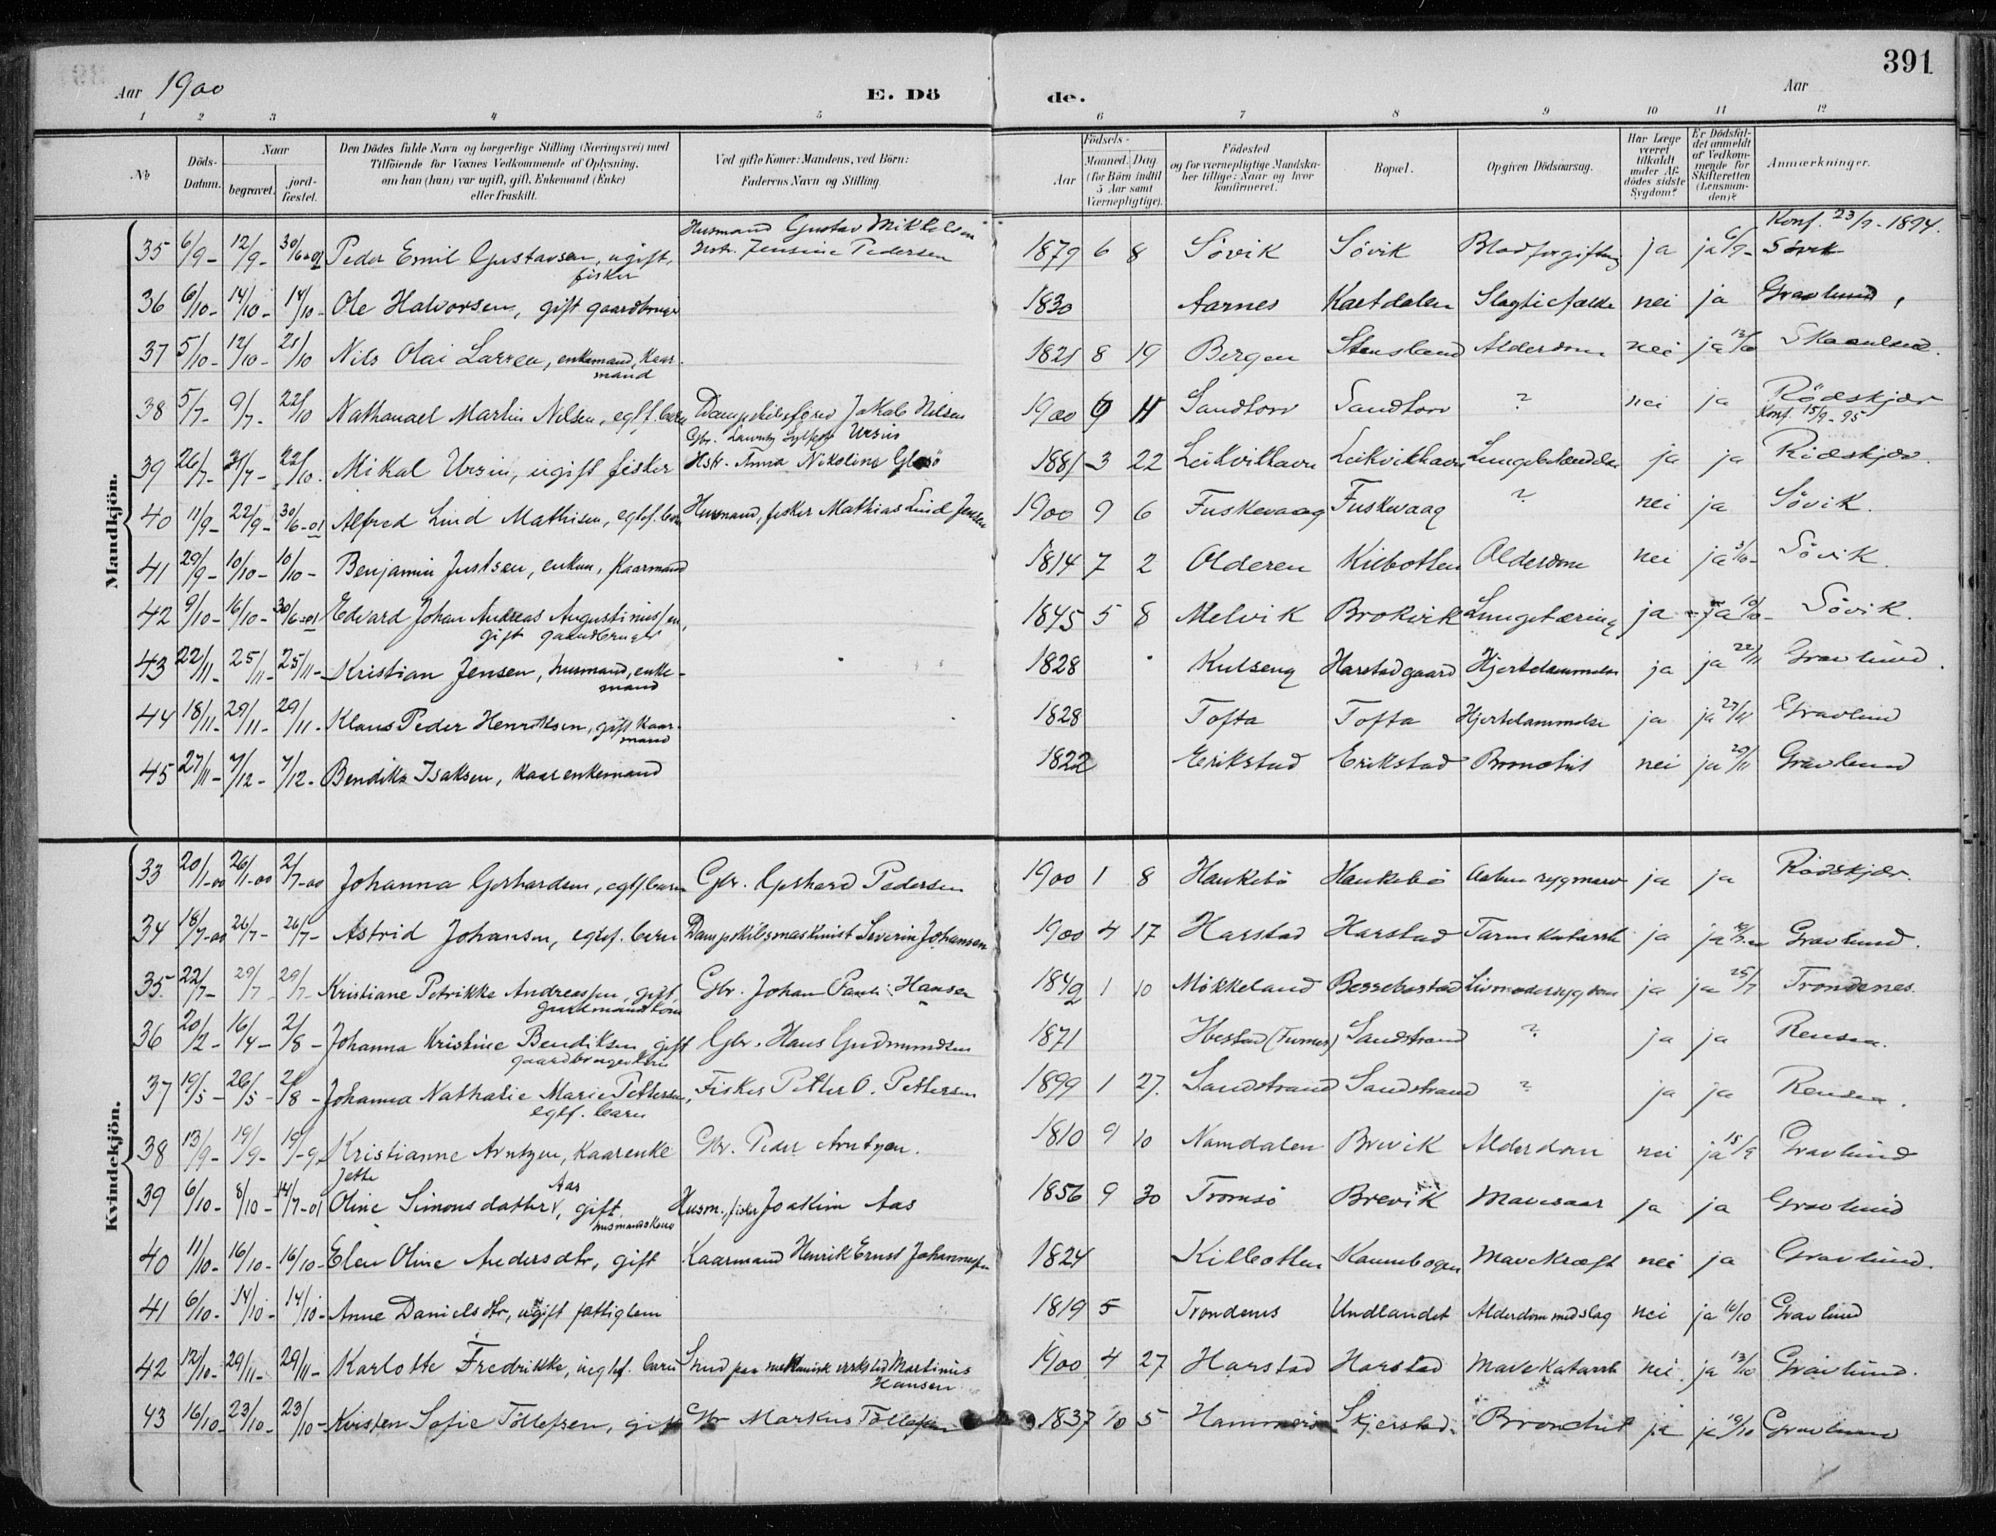 391
Aar 1900 E. Dö de. Aar
1 2 3 4 5 6 7 8 9 10 11 12
No. Döds-Datum. Naar begravet. jord-fæstet. Den Dödes fulde Navn og borgerlige Stilling (Næringsvei) med Tilföiende for Voxnes Vedkommende af Oplysning, om han (hun) var ugift, gift, Enkemand (Enke) eller fraskilt. Ved gifte Koner: Mandens, ved Börn: Faderens Navn og Stilling. Födsels- Aar Maaned. Dag (for Börn indtil 5 Aar samt Værnepligtige). Födested og for værnepligtige Mandska-ber tillige: Naar og hvor konfirmeret. Bopæl. Opgiven Dödsaarsag. Har Læge været tilkaldt under Af-dödes sidste Sygdom? Er Dödsfal-det anmeldt af Vedkom-mende for Skifteretten (Lensman-den)? Anmærkninger.
Mandkjön.
Husmand Gustav Mikkelsen Konf. 23/9-1894.
35 6/9- 12/9- 30/6-01 Peder Emil Gustavsen, ugift, Hstr. Jensine Pedersen 1879 6 8 Sövik Sövik Blodforgiftning ja ja 6/9- Sövik
fisker
36 6/10- 14/10- 14/10- Ole Halvorsen, gift gaardbruger 1830 Aarnes Kaetdalen Slagtilfælde nei ja Gravlund,
37 5/10- 12/10- 21/10 Nils Olai Larsen, enkemand, kaar- 1821 8 19 Bergen Stensland Alderdom nei ja 13/10
mand
38 5/7- 9/7- 22/10 Nathanael Martin Nilsen, egtf. barn Dampskibsfører Jakob Nilsen 1900 Sandtorv Sandtorv ? nei ja Rödskjær
Ursin Konf. 15/9-95
39 26/7- 31/7- 22/10- Mikal Ursin, ugift fisker Hstr. Anna Nikoline 1881 3 22 Leikvikhavn Leikvikhavn Lungebetændelse ja ja Rödskjær.
40 11/9- 22/9- 30/6-01 Alfred Lind Mathisen, egtef. barn Husmand, fisker Mathias Lind Jensen 1900 9 6 Fuskevaag Fuskevaag ? nei ja Sövik.
41 29/9- 10/10- 10/10- Benjamin Justsen, enkem., kaarmand 1814 7 2 Olderen Kilbotten Alderdom nei ja Sövik.
42 9/10- 16/10- 30/6-01 Edvard Johan Andreas Augustinussen, 1845 5 8 Melvik Brokvik Lungetæring ja ja 10/10- Sövik.
gift gaardbruger
43 22/11- 25/11- 25/11- Kristian Jensen, husmand, enke- 1828 Kulseng Harstadgaard Hjertelammelse ja ja 22/11 Gravlund.
mand
44 18/11- 29/11- 29/11- Klaus Peder Henriksen, gift kaar- 1828 Tofta Tofta Hjertelammelse ja ja 27/11 Gravlund
mand
45 27/11- 7/12- 7/12- Bendiks Isaksen, kaarenkemand 1822 Erikstad Erikstad Bronchit nei ja 29/11 Gravlund
Kvindekjön.
33 20/1-00 26/1-00 2/7-00 Johanna Gerhardsen, egtf. barn Gbr. Gerhard Pedersen 1900 1 8 Haukebö Haukebö Aaben rygmarv ja ja Rödskjær.
34 18/7-00 26/7- 26/7- Astrid Johansen, egtef. barn Dampskibsmaskinist Severin Johansen 1900 4 17 Harstad Harstad Tarmkatarrh ja ja Gravlund.
35 22/7- 29/7 29/7- Kristiane Petrikke Andreassen, gift, Gbr. Johan Hansen 1849 1 10 Mökkeland Bessebostad Livmodersygdom ja ja 25/7 Trondenes.
36 20/2- 16/4- 2/8- Johanna Kristine Bendiksen gift Gbr. Hans Gudmundsen 1871 Sandstrand ? ja ja Rensaa.
gaardbrugerkone
37 19/5- 26/5- 2/8- Johanna Nathalie Marie Pettersen, Fisker Petter O. Pettersen 1899 1 27. Sandstrand Sandstrand ? ja ja Rensaa.
egtf. barn
38 13/9- 19/9- 19/9 Kristianne Arntzen, kaarenke Gbr. Peder Arntzen. 1810 9 10 Namdalen Brevik Alderdom nei ja 15/9 Gravlund
Jette Aas
39 6/10- 8/10- 14/7-01 Oline Simonsdatter, gift Husm., fisker Joakim Aas 1856 9 30 Tromsö Brevik Mavesaar ja ja Gravlund
husmandskone
40 11/10- 16/10- 16/10- Elen Oline Andersdtr, gift Kaarmand Henrik Ernst Johannessen 1824 Kilbotten Kannebogen Mavekræft nei ja Gravlund.
41 6/10- 14/10- 14/10- Anne Danielsdtr, ugift fattiglem 1819 5 Trondenes Undlandet Alderdom med slag nei ja 16/10 Gravlund
42 12/10- 29/11- 29/11- Karlotte Fredrikke, uegtef. barn Smed paa mekanisk verksted Martinus 1900 4 27 Harstad Harstad Mavekatarrh nei. ja 13/10 Gravlund.
Hansen
43 16/10- 23/10- 23/10- Kirsten Sofie Tollefsen, gift Gbr Markus Tollefsen 1837 10 5 Hammerö Skjerstad. Bronchit ja ja 19/10 Gravlund